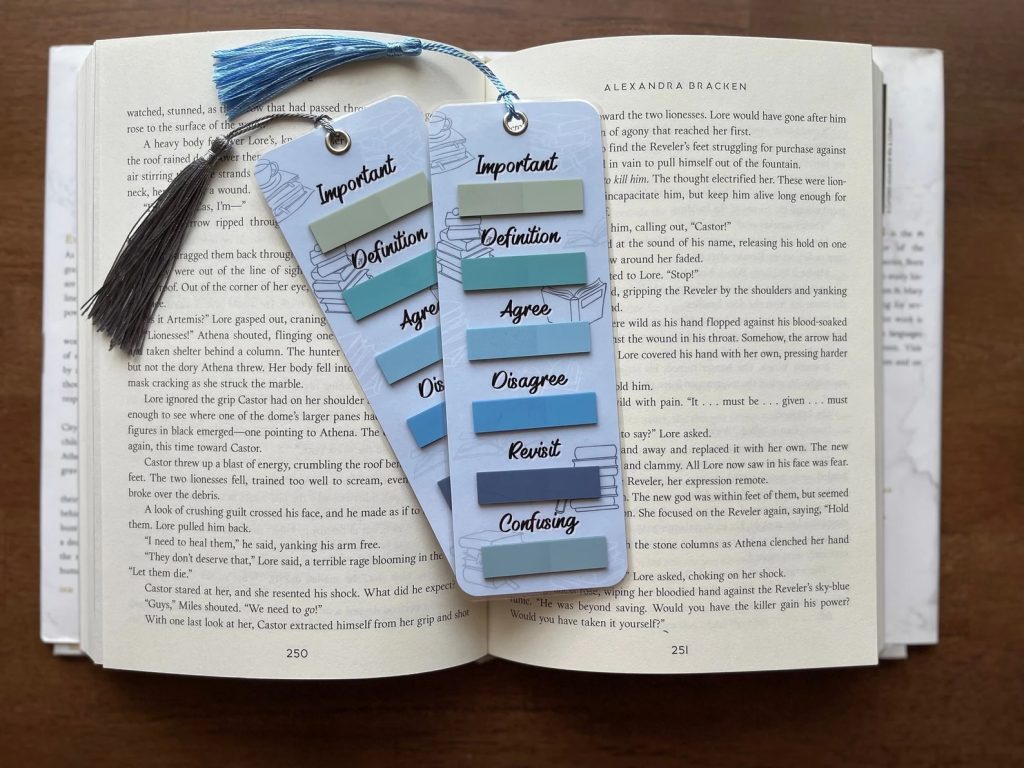 watched, stunned, as that had passed
rose to the surface of the
A heavy body Lore's,
the roof rained over
air stirring strands
neck, a wound.
I'm—"
ripped
dragged them back through
were out of the line of
Out of the corner of her eye,
it Artemis?" Lore gasped out,
"Lionesses!" Athena shouted, flinging one
taken shelter behind a column. The hunter
but not the dory Athena threw. Her body fell
mask cracking as she struck the marble.
Lore ignored the grip Castor had on her shoulder
enough to see where one of the dome's larger panes
figures in black emerged—one pointing to Athena. The
again, this time toward Castor.
Castor threw up a blast of energy, crumbling the roof
feet. The two lionesses fell, trained too well to scream,
broke over the debris.
A look of crushing guilt crossed his face, and he made as if to
them. Lore pulled him back.
"I need to heal them," he said, yanking his arm free.
"They don't deserve that," Lore said, a terrible rage blooming in
"Let them die."
Castor stared at her, and she resented his shock. What did he expect?
"Guys," Miles shouted. "We need to go!"
With one last look at her, Castor extracted himself from her grip and shot
250
Important
Definition
Important
Definition
Agree
Disagree
Revisit
Confusing
ALEXANDRA BRACKEN
the two lionesses. Lore would have gone after him
of agony that reached her first.
find the Reveler's feet struggling for purchase against
in vain to pull himself out of the fountain.
to kill him. The thought electrified her. These were lion-
incapacitate him, but keep him alive long enough for
him, calling out, "Castor!"
at the sound of his name, releasing his hold on one
around her faded.
to Lore. "Stop!"
gripping the Reveler by the shoulders and yanking
wild as his hand flopped against his blood-soaked
the wound in his throat. Somehow, the arrow had
Lore covered his hand with her own, pressing harder
him.
with pain. "It . . . must be . . . given . . . must
to say?" Lore asked.
and away and replaced it with her own. The new
and clammy. All Lore now saw in his face was fear.
Reveler, her expression remote.
The new god was within feet of them, but seemed
She focused on the Reveler again, saying, "Hold
the stone columns as Athena clenched her hand
Lore asked, choking on her shock.
rose, wiping her bloodied hand against the Reveler's sky-blue
"He was beyond saving. Would you have the killer gain his power?
Would you have taken it yourself?"
251